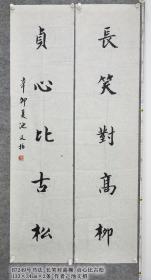 長笑對高柳
貞心比古松
辛卯夏池文招
B7249号书法，长笑对高柳，贞心比古松
(133×34cm×2条)作者：池文招